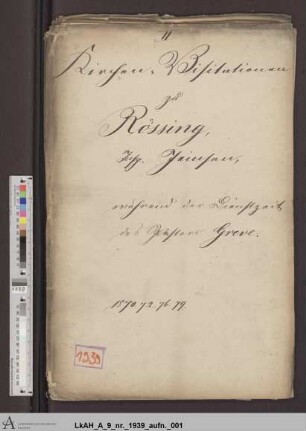 11
Kirchen-Visitationen
zu
Rössing,
Insp. Jeinsen,
während der Dienstzeit
des Pastors Greve.
1870. 73. 76. 79.
1939
LkAH_A_9_nr._1939_aufn._001